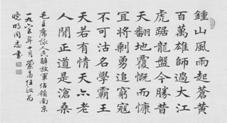 鍾山風雨起蒼黃
百萬雄師過大江
虎踞龍盤今勝昔
天翻地覆慨而慷
宜將剩勇追窮寇
不可沽名學霸王
天若有情天亦老
人間正道是滄桑
毛主席 人民解放軍佔領南京
一九六五年十月 任政
同志 書